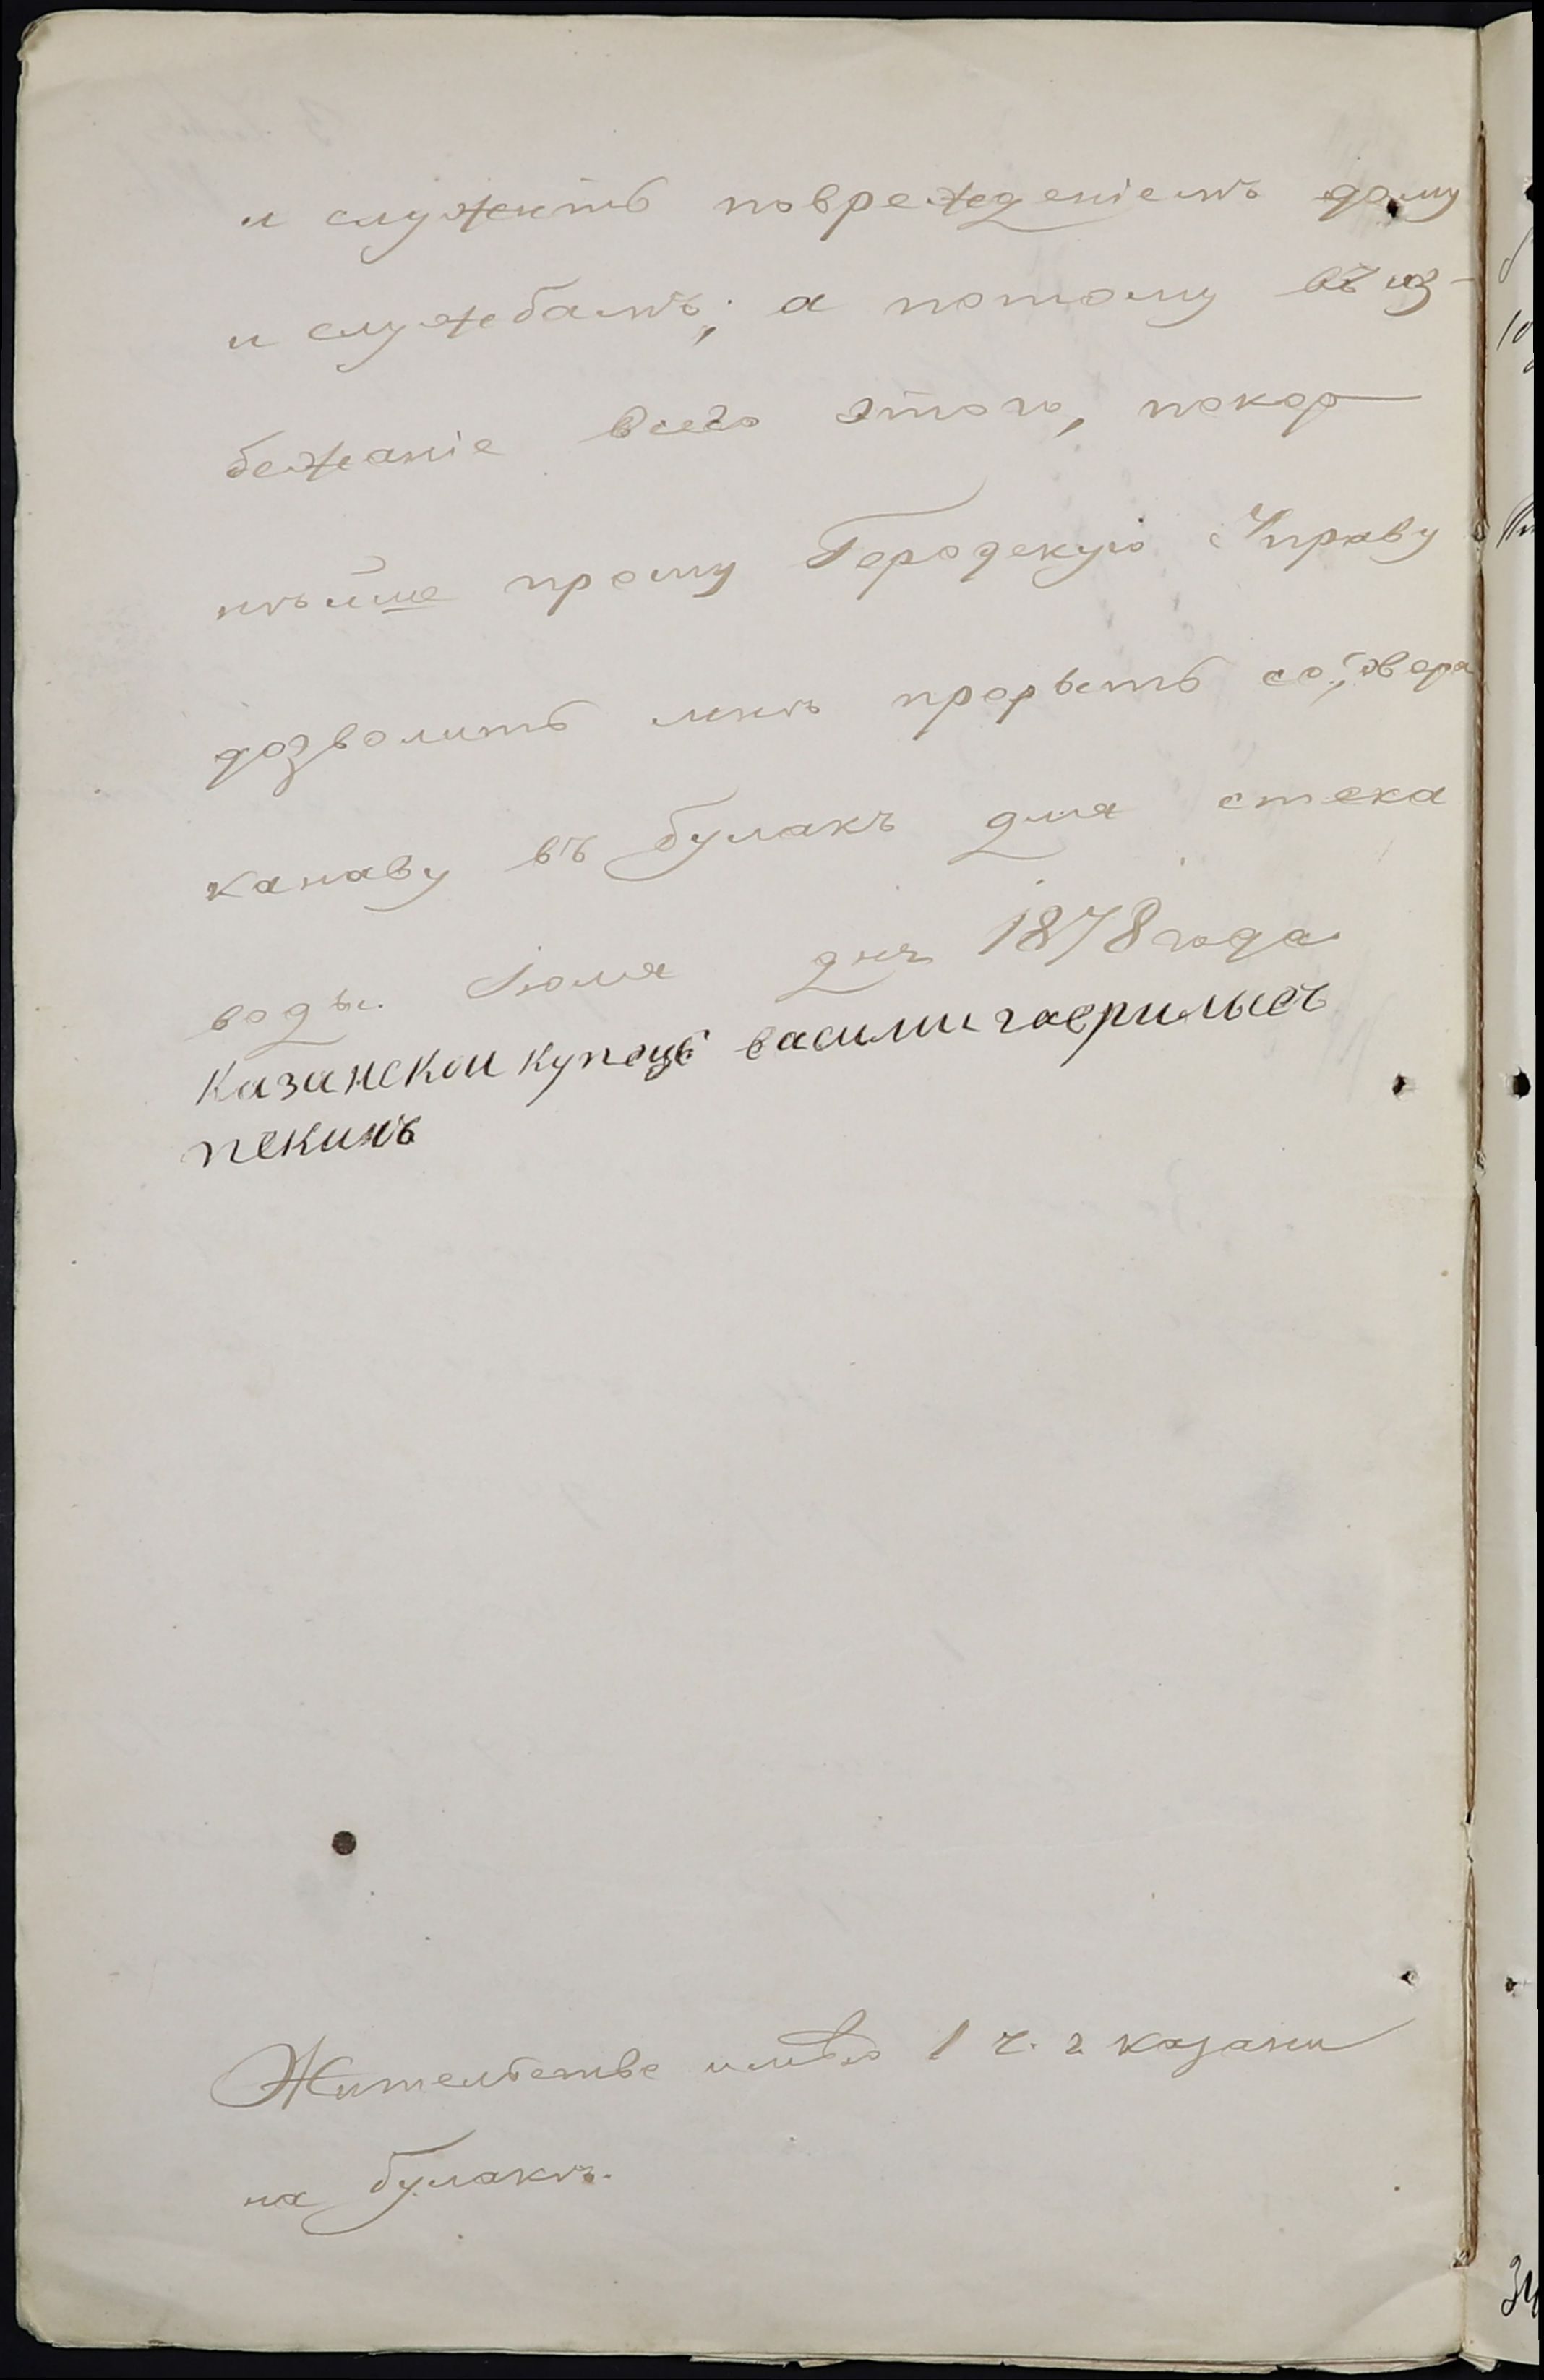 и служить поврежденіемъ дому
и службамъ; а потому въ из-
бежаніе всего этого, покор
нѣйше прошу Городскую Управу
дозволить мнѣ прорыть со двора
канаву въ булакъ для стека
воды. Іюля дня 1878 года
Казанскои купецъ васили гаврилывъ
пекинъ
Жительство имѣю 1 ч. г казани
на булакѣ.